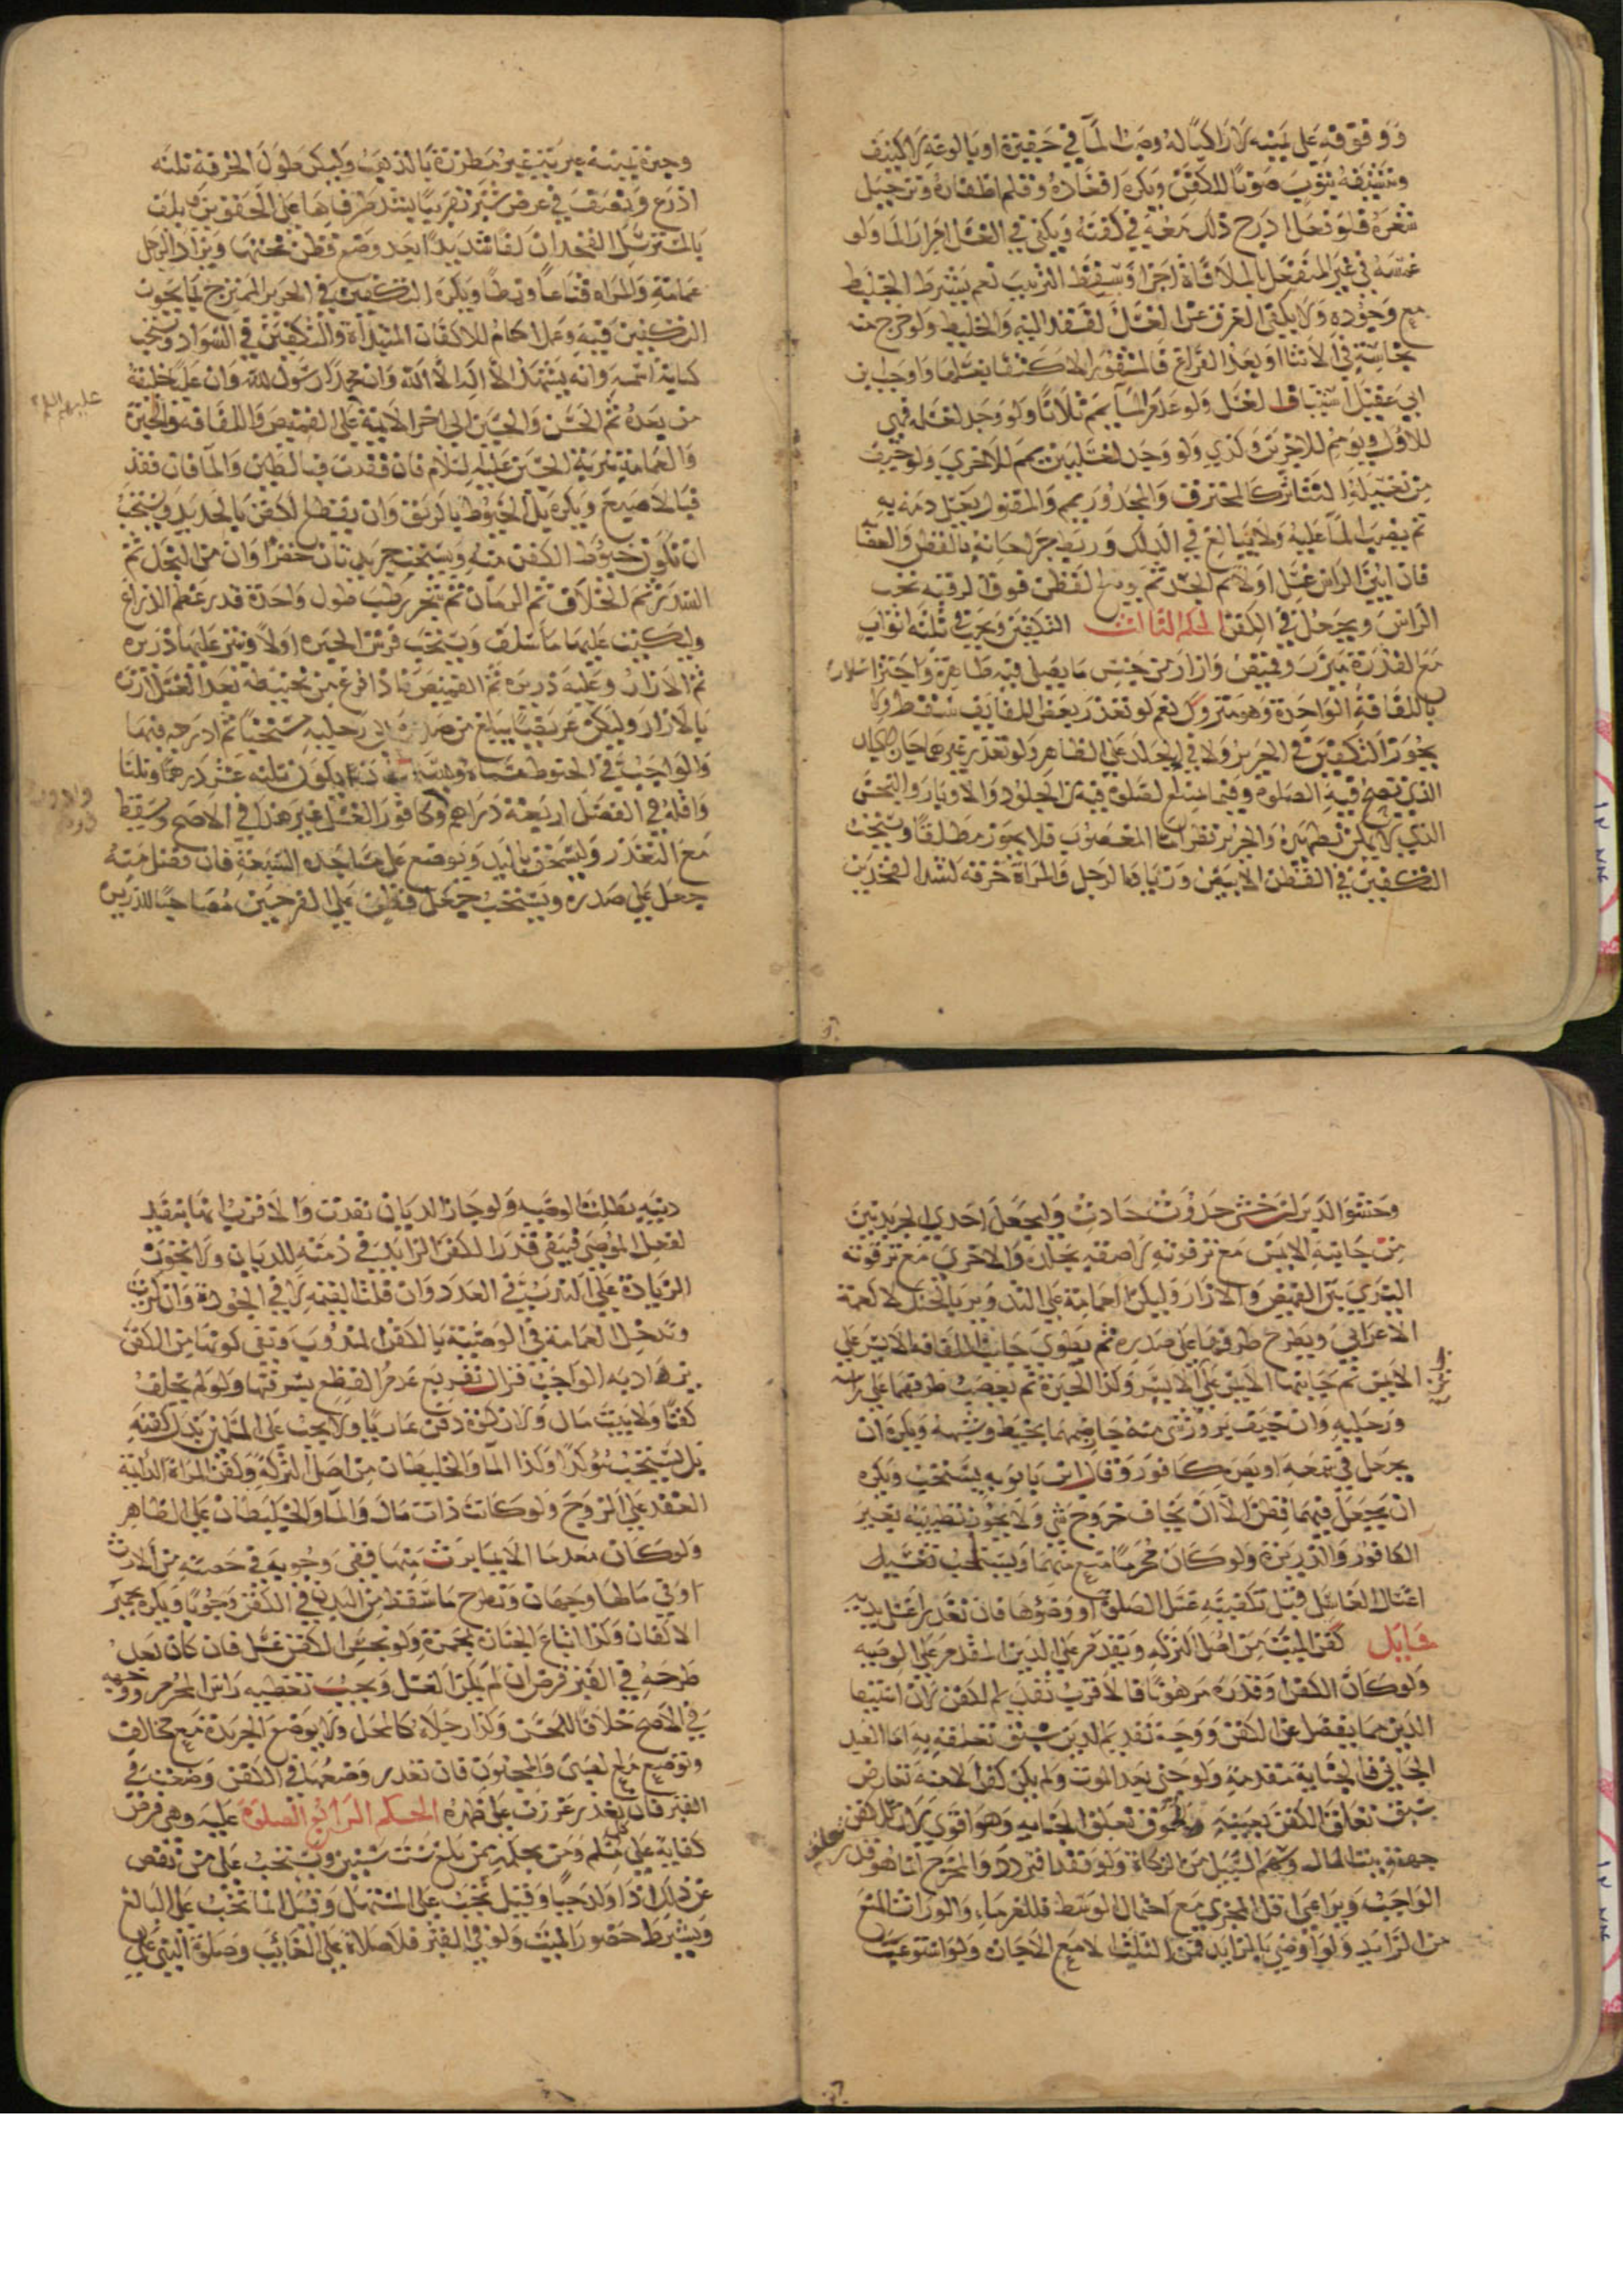 ووقوفه على يمينه لا راكبا له وصب الماء في حفيرة او بالوعة لا كنيف
وتنشيفه بثوب صونا للكفن ويكره اقعاده وقلم اظفاره وترجيل
شعره فلو فعل ادرج ذلك معه في كفنه ويكفي في الغسل امرار الماء ولو
غمسه في غير المنفعل بالملاقاة اجزا وسقط الترتيب نعم يشترط الخليط
مع وجوده ولا يكفي الغرق عن الغسل لفقد النية والخليط ولو خرج منه
نجاسة في الاثناء او بعد الفراغ فالمشهور الاكتفاء بغسلها واوجب ابن
ابي عقيل استيناف الغسل ولو عدم الماء يمم ثلاثا ولو وجد لغسله فهي
للاول ويومم للاخرتين ولو وجد لغسلتين يمم للاخرى ولو خيف
من تغسيله التناثر كالمحترق والمجدور يمم والمقتول يغسل دمه به
ثم يصب الماء عليه ولا يبالغ في الدلك وربط جراحاته بالقطن والعصا
فان ابين الراس غسل اولا ثم الجسد ثم يوضع القطن فوق الرقبة نحو
الراس ويجعل في الكفن الحكم الثالث التكفين ويجب في ثلثة اثواب
مع القدرة ميزر وقميص وازار من جنس ما يصلي فيه طاهرة واجتزا سلار
باللفافة الواحدة وهو متروك نعم لو تعذر بعض اللفايف سقط ولا
يجوز التكفين في الحرير ولا في الجلد على الظاهر ولو تعذر غيرهما جاز
الذي تصح فيه الصلوة وفيما تمتنع الصلوة فيه من الجلود والاوبار والنجس
الذي لا يمكن تطهيره والحرير نظر اما المغصوب فلا يجوز مطلقا ويستحب
التكفين في القطن الابيض وزيادة الرجل والمراة خرقة لشد الفخذين
وحبرة يمنية عبرية غير مطرزة بالذهب وليكن طول الخرقة ثلثة
اذرع ونصف في عرض شبر تقريبا يشد طرفاها على الحقوين ويلف
بالمسترسل الفخذان لفا شديدا بعد وضع قطن تحتها ويزاد الرجل
عمامة والمراة قناعا ونمطا ويكره التكفين في الحرير الممتزج بما يجوز
التكفين فيه وعمل اكمام للاكفان المبتداة والتكفين في السواد ويستحب
كتابة اسمه وانه يشهد الا اله الا الله وان محمدا رسول الله وان عليا خليفته
من بعده ثم الحسن والحسين الى اخر الائمة على القميص واللفافة والحبرة
عليهم السلم
والعمامة بتربة الحسين عليه السلام فان فقدت فبالطين والماء فان فقد
فبالاصبع ويكره بل الخيوط بالريق وان يقطع الاكفن بالحديد ويستحب
ان تكون خيوط الكفن منه ويستحب جريدتان خضرا وان من النخل ثم
السدر ثم الخلاف ثم الرمان ثم شجر رطب طول واحدة قدر عظم الذراع
وليكتب عليهما ما سلف ويستحب فرش الحبرة اولا ونثر عليها ذريرة
ثم الازار وعليه ذريرة ثم القميص فاذا فرغ من تحنيطه بعد الغسل ازره
بالازار وليكن عريضا يبلغ من صدره الى رجليه مستحبا ثم ادرجه فيها
والواجب في الحنوط مسماه والمستحب ان يكون ثلثة عشر درهما وثلثا
واقله في الفضل اربعة دراهم وكافور الغسل غير هذا في الاصح وسقط
مع التعذر وليسحق باليد ويوضع على مساجده السبعة فان فضل منه
جعل على صدره ويستحب جعل قطن على الفرجين مصاحبا للذريرة
وحشو الدبر ان خشي حدوث حادث واجعل احدى الجريدتين
من جانبه الايمن مع ترقوته لاصقة بجلده والاخرى مع ترقوته
اليسرى بين القميص والازار وليكن العمامة على الندوير بالحنك لا كعمة
الاعرابي ويطرح طرفيها على صدره ثم يطوى جانب اللفافة الايسر على
الايمن ثم جانبها الايمن على الايسر وكذا الحبرة ثم يعصب طرفهما على راسه
ورجليه وان خيف بروز شي منه خاطهما بخيط وشبهه ويكره ان
يجعل في سمعه او بصره كافور وقال ابن بابويه يستحب ويكره
ان يجعل فيهما قطن الا ان يخاف خروج شي ولا يجوز تطييبه بغير
الكافور والذريرة ولو كان محرما منع منهما ويستحب تغسيل
اغتسال الغاسل قبل تكفينه غسل الصلوة او وضوها فان تعذر غسل يديه
مسايل كفن الميت من اصل التركة ويقدم على الدين المقدم على الوصية
ولو كان الكفن او قدره مرهونا فالاقرب تقديم الكفن لان استيفا
الدين مما يفضل عن الكفن ووجه تقديم الدين سبق تعلقه به اما العبد
الجاني فالجناية متقدمة ولو جنى بعد الموت ولم يكن كفن لامه تعارض
سبق تعلق الكفن بعينه ولحوق تعلق الجناية وهو اقوى لان للكفن
جهة وبيت المال وسهم السبيل من الزكاة ولو فقدا فتردد والمخرج انما هو قدر
الواجب ويراعى اقل المجزي مع احتمال الوسط فللغرماء والوراث المنع
من الزايد ولو اوصى بالزايد فمن الثلث الا مع الاجازة ولو استوعب
دينه بطلت الوصية ولو اجاز الديان نفذت والاقرب انها تنفيذ
لفعل الموصي فيبقى قدر الكفن الزايد في ذمته للديان ولا تجوز
الزيادة على الندب في العدد وان قلت القيمة لا في الجودة وان كثرت
وتدخل العمامة في الوصية بالكفن المندوب ونفي كونها من الكفن
يراد به الواجب فرال تفريع عدم القطع بسرقتها ولو لم يخلف
كفنا ولا بيت مال ولا زكوة دفن عاريا ولا يجب على المسلمين بذل كفنه
بل يستحب مؤكدا وكذا الماء والخليطان من اصل التركة وكفن المراة الدائمة
العقد على الزوج ولو كانت ذات مال والماء والخليطان على الظاهر
ولو كان معدما الا بما يرث منها ففي وجوبه في حصته من الارث
او في مالها وجهان وتطرح ما سقط من البدن في الكفن وجوبا ويكره تجمير
الاكفان وكذا اتباع الجنازة بجمرة ولو نجس الكفن غسل فان كان بعد
طرحه في القبر قرض ان لم يمكن الغسل ويجب تغطية راس المحرم ووجهه
في الاصح خلافا للحسن وكذا رجلاه كالمحل ولا يوضع الجريدة مع مخالف
وتوضع مع الصبي والمجنون فان تعذر وضعها في الكفن وضعت في
القبر فان تعذر غرزت على ظهره الحكم الرابع الصلوة عليه وهي فرض
كفاية على كل مسلم ومن بحكمه ممن بلغ ست سنين ويستحب على من نقص
عن ذلك اذا ولد حيا وقيل تجب على المستهل وقيل انما تجب على البالغ
ويشترط حضور الميت ولو في القبر فلا صلاة على الغائب وصلوة النبي على